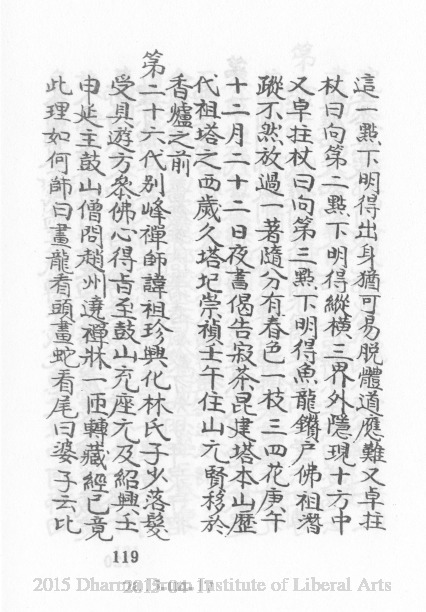 這一點下明得出身猶可易脫體道應難又卓拄
杖曰向第二點下明得縱橫三界外隱現十方中
又卓拄杖曰向第三點下明得魚龍鑽戶佛祖潛
蹤不然放過一著隨分有春色一枝三四花庚午
十二月二十二日夜書偈告寂茶毘建塔本山歷
代祖塔之西歲久塔圮崇禎壬午住山元賢移於
香爐之前
第二十六代別峰禪師諱祖珍興化林氏子少落髮
受具遊方參佛心得旨至鼓山充座元及紹興壬
申延主鼓山僧問趙州遶禪牀一匝轉藏經已竟
此理如何師曰畫龍看頭畫蛇看尾曰婆子云比
119
2015 Dharma Drum Institute of Liberal Arts
2015-04-17